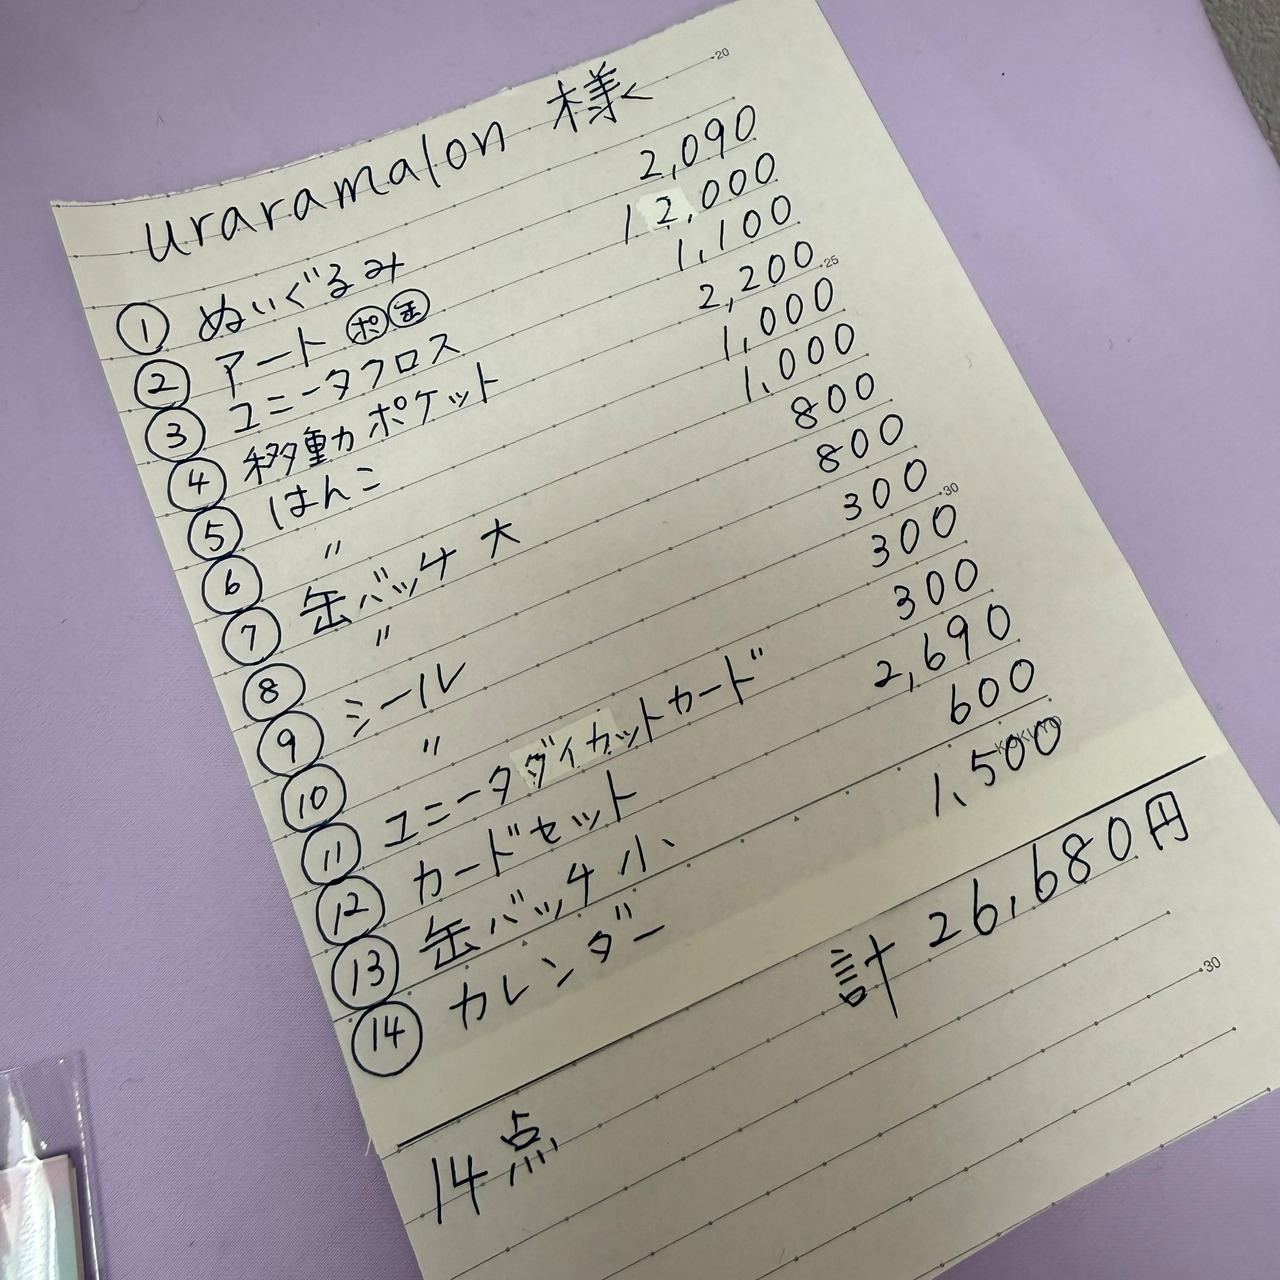 uraramalon 様
① ぬいぐるみ 2,090
② アート ㋭缶 12,000
③ ユニータクロス 1,100
④ 移動ポケット 2,200
⑤ はんこ 1,000
⑥ 〃 1,000
⑦ 缶バッチ 大 800
⑧ 〃 800
⑨ シール 300
⑩ 〃 300
⑪ ユニータダイカットカード 300
⑫ カードセット 2,690
⑬ 缶バッチ 小 600
⑭ カレンダー 1,500
計 26,680円
14点
20
25
30
KOKUYO
30